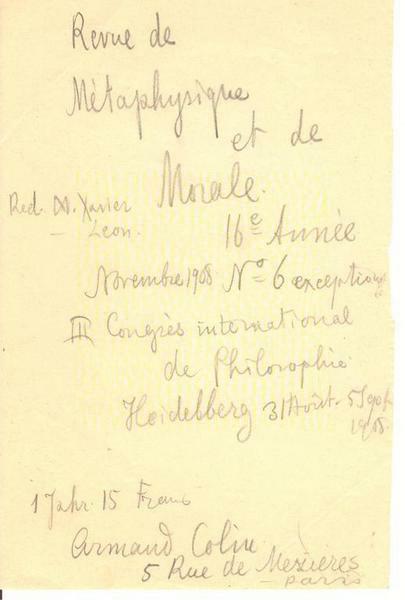 Revue de
Métaphysique
et de
Morale.
Red. M. Xavier
Leon.
16e Année
Novembre 1908 No 6 exception
III Congrès international
de Philosophie
Heidelberg 31 Août - 5 Sept
1908.
1 Jahr. 15 Franc
Armand Colin
5 Rue de Mezières
- Paris